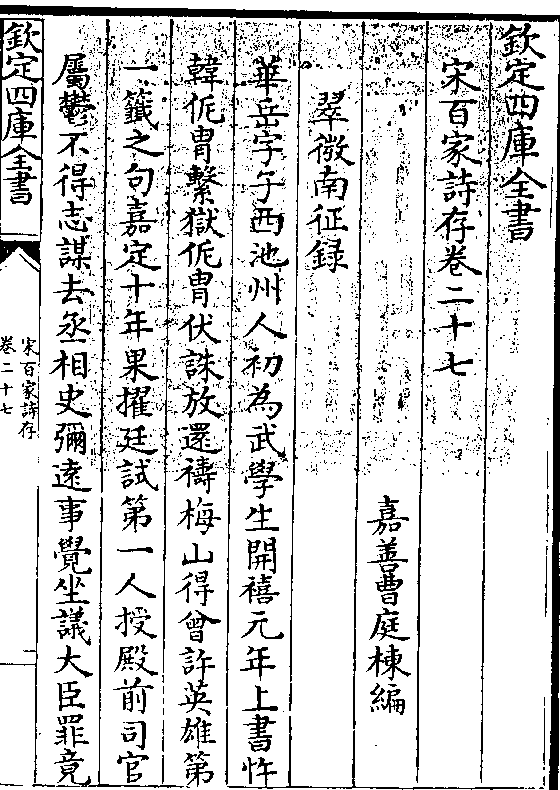 欽定四庫全書
宋百家詩存卷二十七
嘉善曹庭棟編
翠微南征録
華岳字子西池州人初為武學生開禧元年上書忤
韓侂胄繫獄侂胄伏誅放還禱梅山得曾許英雄第
一籤之句嘉定十年果擢廷試第一人授殿前司官
屬鬱不得志謀去丞相史彌遠事覺坐議大臣罪竟
欽定四庫全書
宋百家詩存
卷二十七